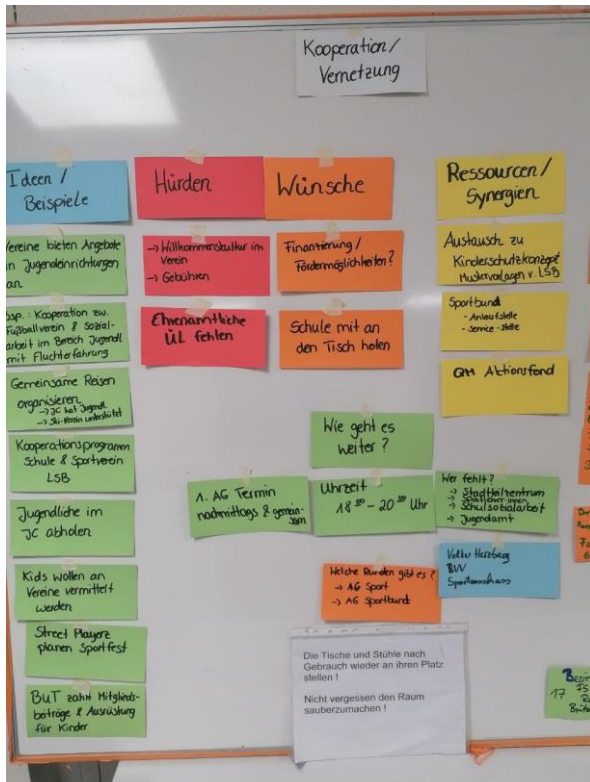 Kooperation/
Vernetzung
Ideen /
Beispiele
Vereine bieten Angebote
in Jugendeinrichtungen
an
Bsp.: Kooperation zw.
Fußballverein & Sozial-
arbeit im Bereich Jugendl.
mit Fluchterfahrung
Gemeinsame Reisen
organisieren
→ JC hat Jugendl.
→ Ski-Verein unterstützt
Kooperationsprogramm
Schule & Sportverein
LSB
Jugendliche im
JC abholen
Kids wollen an
Vereine vermittelt
werden
Street Playerz
planen Sportfest
BuT zahlt Mitglieds-
beiträge & Ausrüstung
für Kinder
Hürden
→ Willkommenskultur im
Verein
→ Gebühren
Ehrenamtliche
ÜL fehlen
Wünsche
Finanzierung /
Fördermöglichkeiten?
Schule mit an
den Tisch holen
Ressourcen /
Synergien
Austausch zu
Kinderschutzkonzept
Mustervorlagen v. LSB
Sportbund
- Anlaufstelle
- Service-Stelle
QM Aktionsfond
Wie geht es
weiter?
1. AG Termin
nachmittags & gemeinsam
Uhrzeit
18 30 – 20 30 Uhr
Wer fehlt?
→ Stadtteilzentrum
→ Schulsozialarbeit
→ Jugendamt
Welche Runden gibt es?
→ AG Sport
→ AG Sportbund
BVV
Die Tische und Stühle nach
Gebrauch wieder an ihren Platz
stellen !
Nicht vergessen den Raum
sauberzumachen !
17